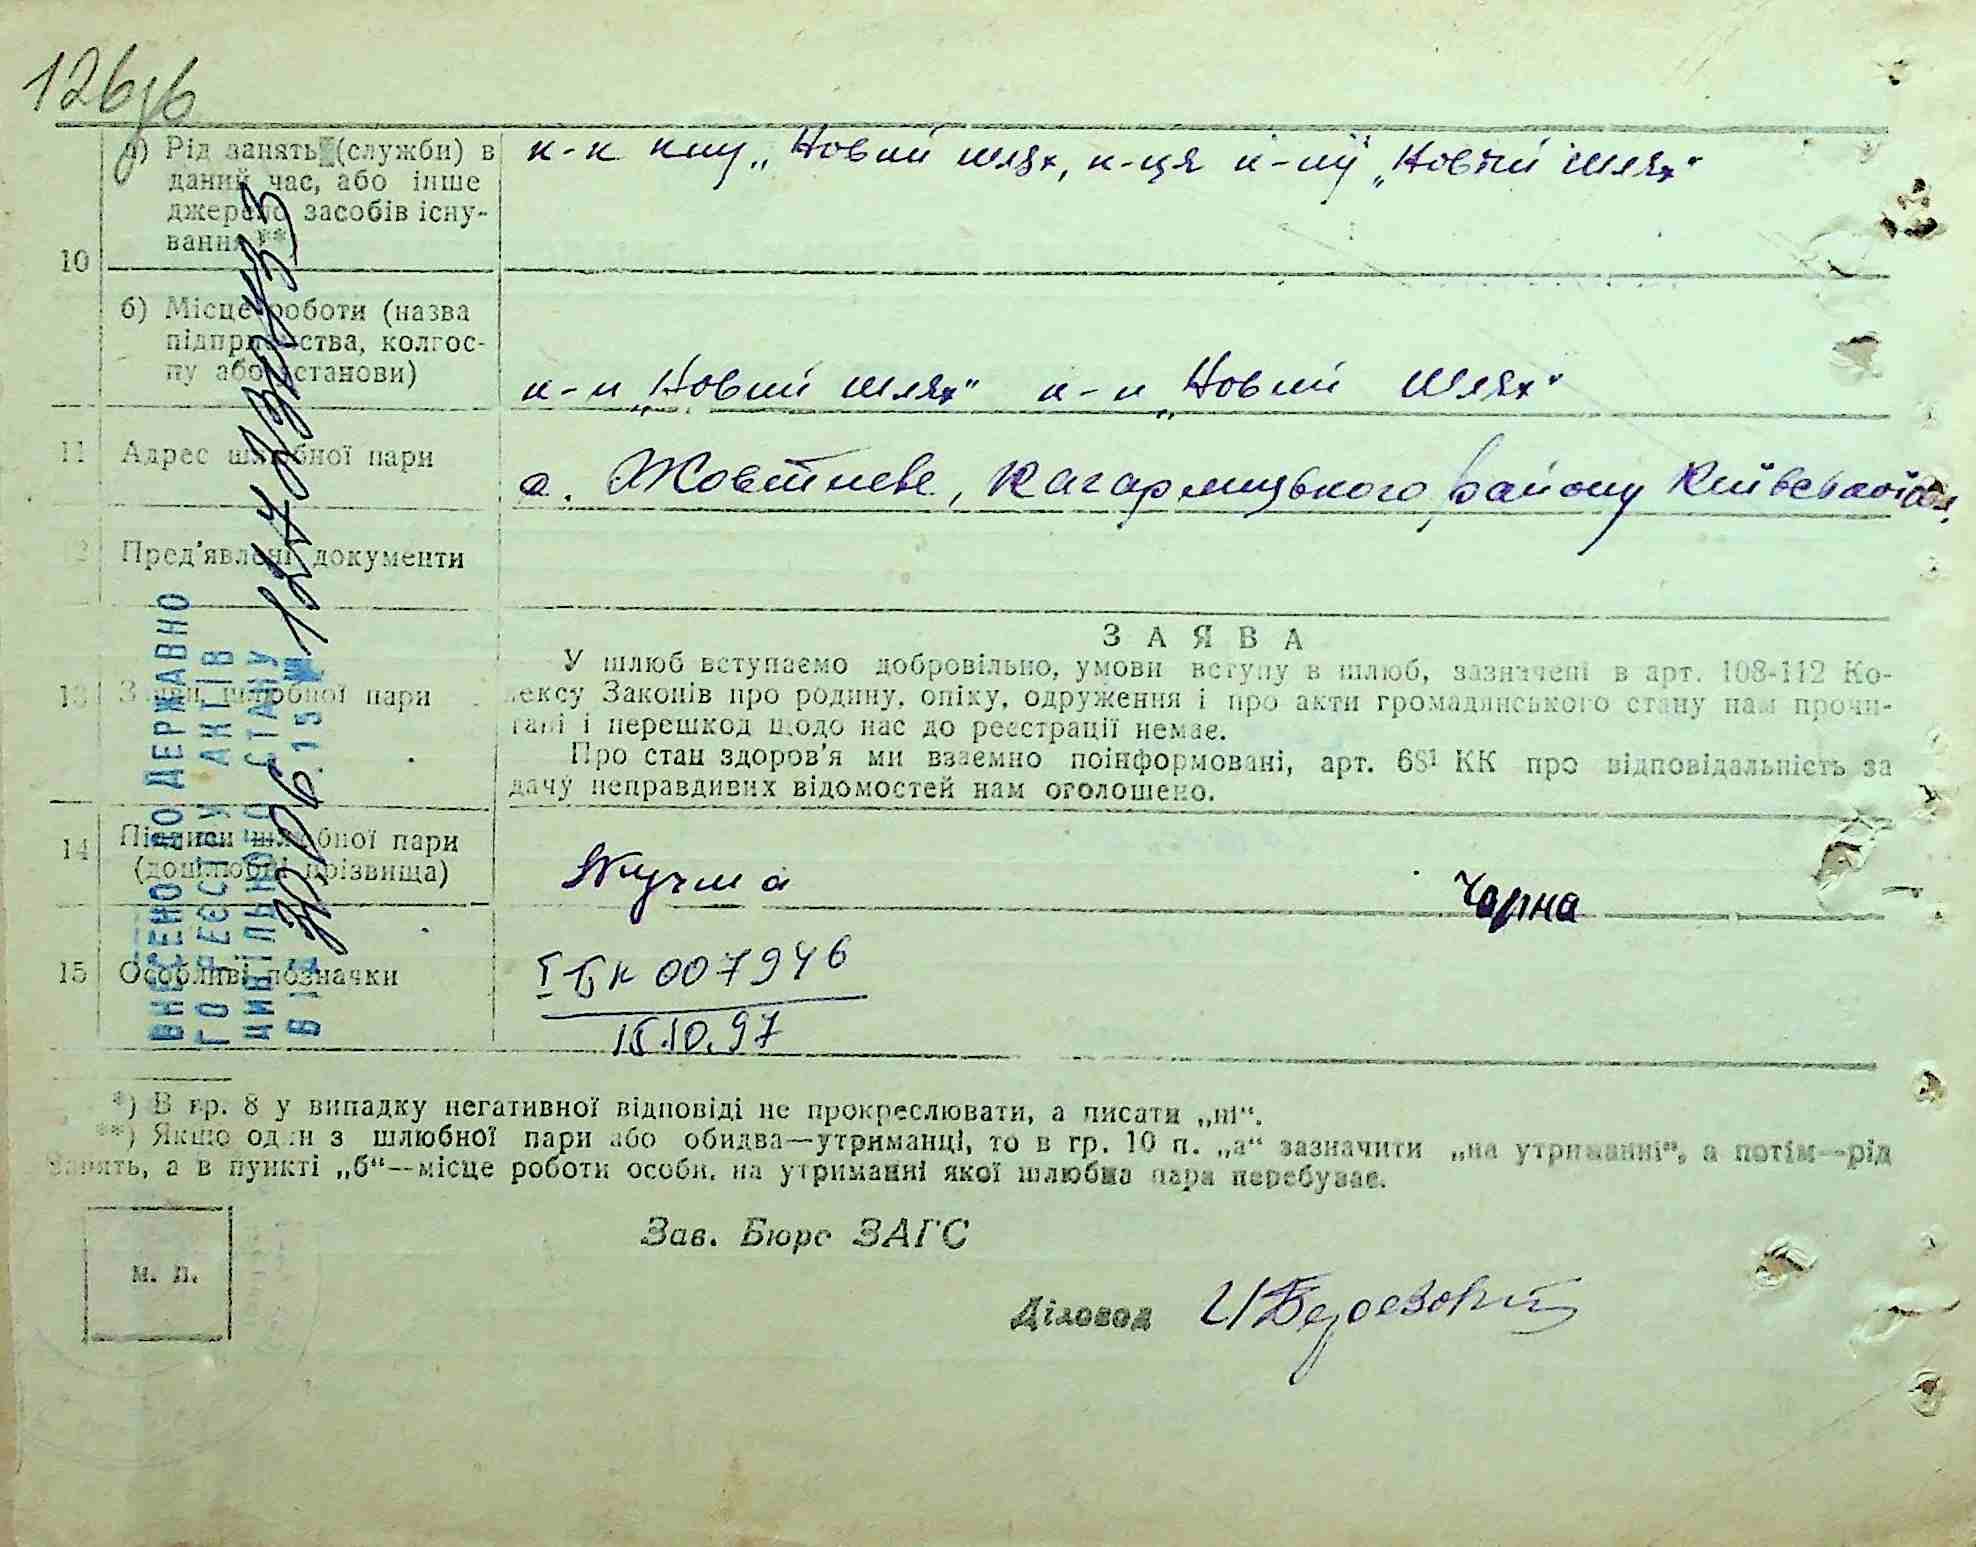 126
а) Рід занять (служби) в
даний час, або інше
джерело засобів існу-
вання **
к-к „Новий шлях, к-ця „Новий шлях"
10
б) Місце роботи (назва
підприємства, колгос-
пу або установи)
к-п „Новий шлях" к-п „Новий Шлях"
11 Адрес шлюбної пари
с. Жовтневе, Кагарлицького району Київської обл.
12 Пред'явлені документи
ЗАЯВА
У шлюб вступаємо добровільно, умови вступу в шлюб, зазначені в арт. 108-112 Ко-
дексу Законів про родину, опіку, одруження і про акти громадянського стану нам прочи-
тані і перешкод щодо нас до реєстрації немає.
Про стан здоров'я ми взаємно поінформовані, арт. 68¹ КК про відповідальність за
дачу неправдивих відомостей нам оголошено.
13 Заяви шлюбної пари
14 Підписи шлюбної пари
(дошлюбні прізвища)
Кучма Чорна
15 Особливі позначки
І БК 007946
15.10.97
ВНЕСЕНО ДО ДЕРЖАВНО
ГО РЕЄСТРУ АКТІВ
ЦИВІЛЬНОГО СТАНУ
В ІС 30.06.15 №
*) В гр. 8 у випадку негативної відповіді не прокреслювати, а писати „ні".
**) Якщо один з шлюбної пари або обидва—утриманці, то в гр. 10 п. „а" зазначити „на утриманні", а потім—рід
занять, а в пункті „б"—місце роботи особи, на утриманні якої шлюбна пара перебуває.
Зав. Бюро ЗАГС
м. п.
Діловод И Березовий